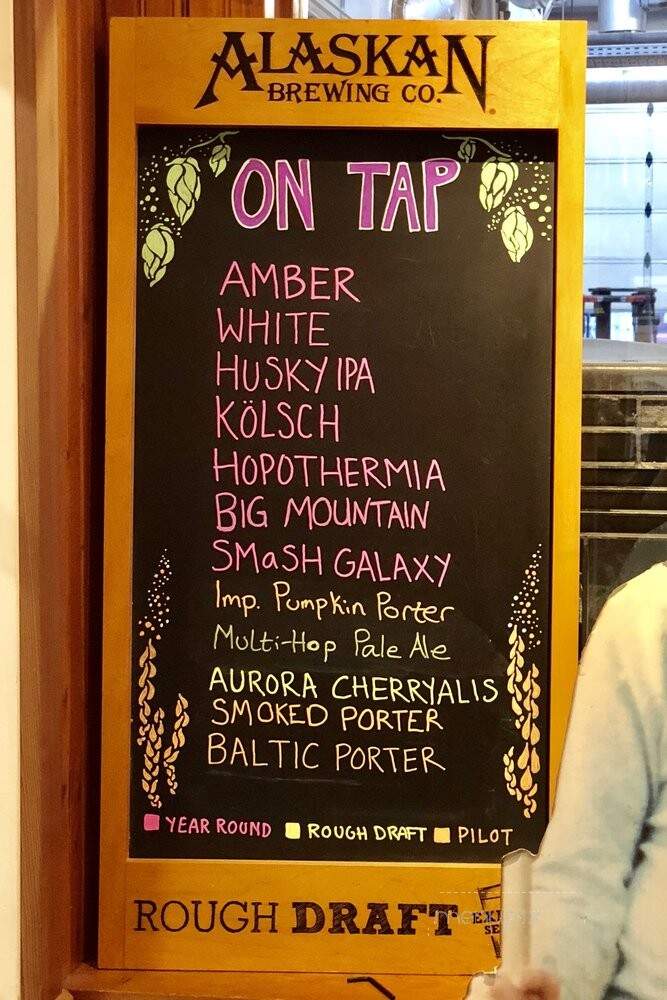 ALASKAN
BREWING CO.
ON TAP
AMBER
WHITE
HUSKY IPA
KÖLSCH
HOPOTHERMIA
BIG MOUNTAIN
SMaSH GALAXY
Imp. Pumpkin Porter
Multi-Hop Pale Ale
AURORA CHERRYALIS
SMOKED PORTER
BALTIC PORTER
YEAR ROUND ROUGH DRAFT PILOT
ROUGH DRAFT